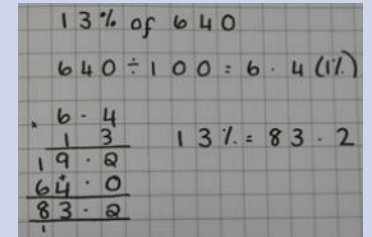 13% of 640
640 ÷ 100 = 6.4 (1%)
6.4
× 13
19.2
64.0
83.2
1
13% = 83.2